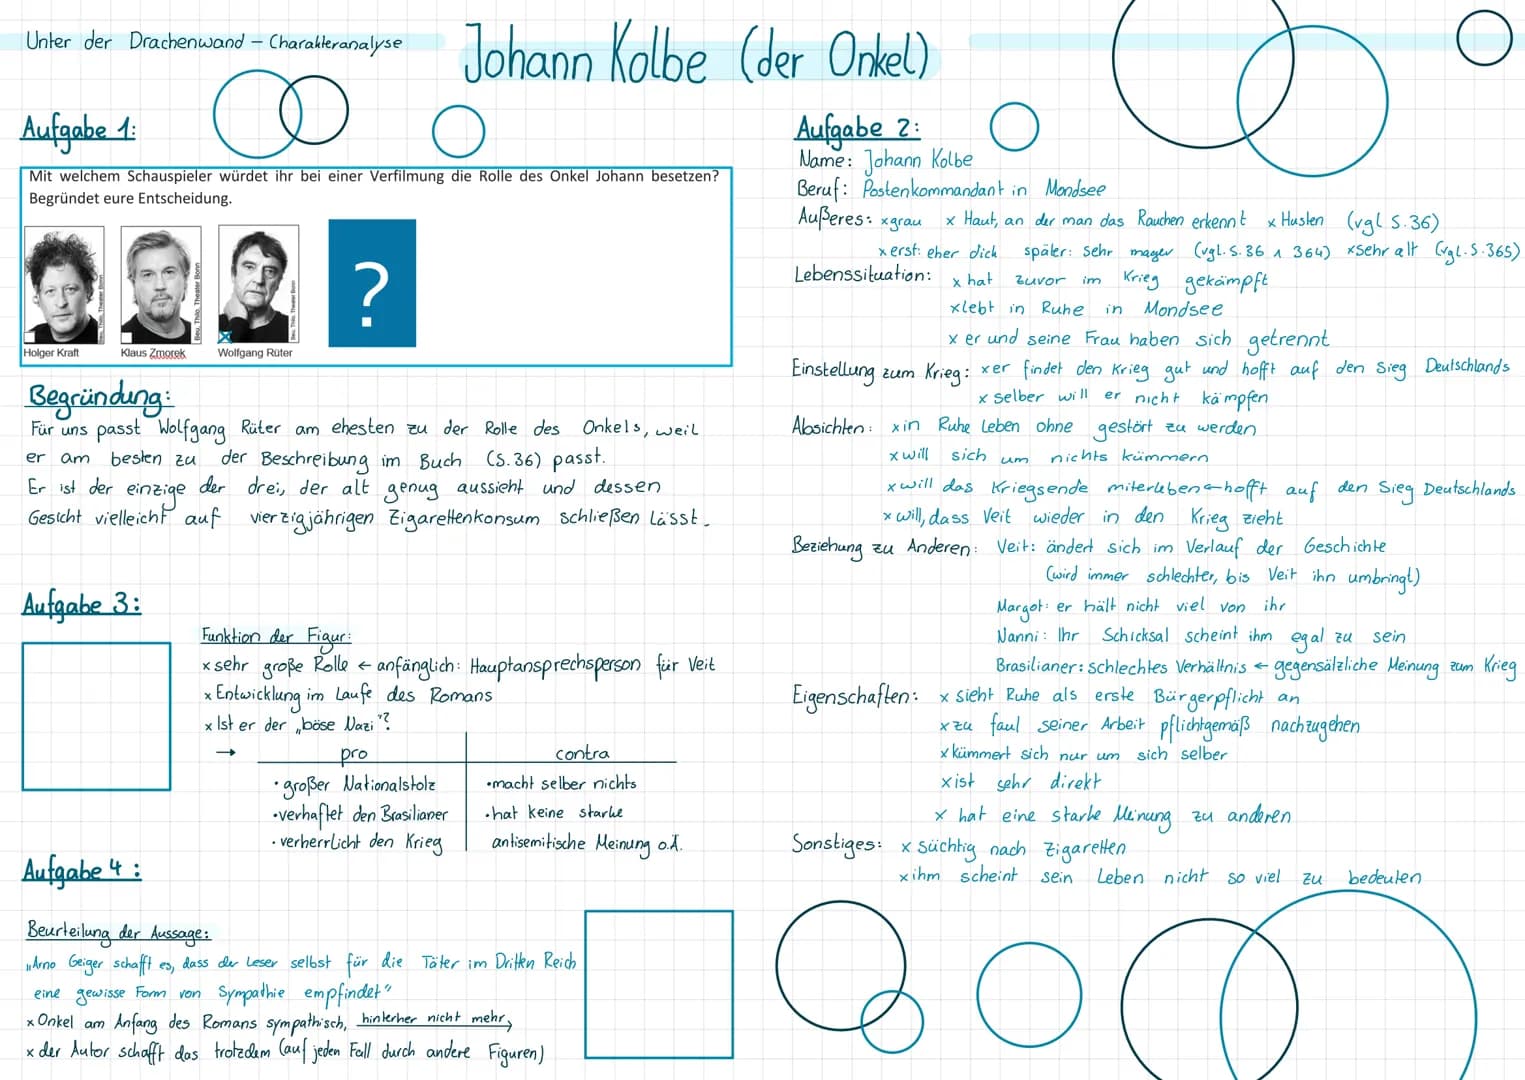 Unter der Drachenwand – Charakteranalyse
Johann Kolbe (der Onkel)
Aufgabe 1:
Mit welchem Schauspieler würdet ihr bei einer Verfilmung die Rolle des Onkel Johann besetzen?
Begründet eure Entscheidung.
Beu, Thilo, Theater Bonn
Beu, Thilo, Theater Bonn
Beu, Thilo, Theater Bonn
?
Holger Kraft
Klaus Zmorek
Wolfgang Rüter
Begründung:
Für uns passt Wolfgang Rüter am ehesten zu der Rolle des Onkels, weil
er am besten zu der Beschreibung im Buch (S.36) passt.
Er ist der einzige der drei, der alt genug aussieht und dessen
Gesicht vielleicht auf vierzigjährigen Zigarettenkonsum schließen lässt.
Aufgabe 3:
Funktion der Figur:
x sehr große Rolle ← anfänglich: Hauptansprechsperson für Veit
x Entwicklung im Laufe des Romans
x Ist er der „böse Nazi"?
→ pro contra
• großer Nationalstolz •macht selber nichts
•verhaftet den Brasilianer •hat keine starke
• verherrlicht den Krieg antisemitische Meinung o.Ä.
Aufgabe 4:
Beurteilung der Aussage:
„Arno Geiger schafft es, dass der Leser selbst für die Täter im Dritten Reich
eine gewisse Form von Sympathie empfindet"
x Onkel am Anfang des Romans sympathisch, hinterher nicht mehr,
x der Autor schafft das trotzdem (auf jeden Fall durch andere Figuren)
Aufgabe 2:
Name: Johann Kolbe
Beruf: Postenkommandant in Mondsee
Außeres: x grau x Haut, an der man das Rauchen erkennt x Husten (vgl S.36)
x erst: eher dick später: sehr mager (vgl. S. 36 ∧ 364) x sehr alt (vgl. S. 365)
Lebenssituation: x hat zuvor im Krieg gekämpft
x lebt in Ruhe in Mondsee
x er und seine Frau haben sich getrennt
Einstellung zum Krieg: x er findet den Krieg gut und hofft auf den Sieg Deutschlands
x selber will er nicht kämpfen
Absichten: x in Ruhe Leben ohne gestört zu werden
x will sich um nichts kümmern
x will das Kriegsende miterleben ← hofft auf den Sieg Deutschlands
x will, dass Veit wieder in den Krieg zieht
Beziehung zu Anderen: Veit: ändert sich im Verlauf der Geschichte
(wird immer schlechter, bis Veit ihn umbringt)
Margot: er hält nicht viel von ihr
Nanni: Ihr Schicksal scheint ihm egal zu sein
Brasilianer: schlechtes Verhältnis ← gegensätzliche Meinung zum Krieg
Eigenschaften: x sieht Ruhe als erste Bürgerpflicht an
x zu faul seiner Arbeit pflichtgemäß nachzugehen
x kümmert sich nur um sich selber
x ist sehr direkt
x hat eine starke Meinung zu anderen
Sonstiges: x süchtig nach Zigaretten
x ihm scheint sein Leben nicht so viel zu bedeuten